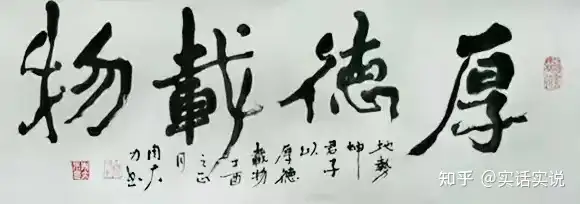 厚德載物
地勢
坤
君子
以
厚德
載物
丁酉
之正
月
知乎 @实话实说